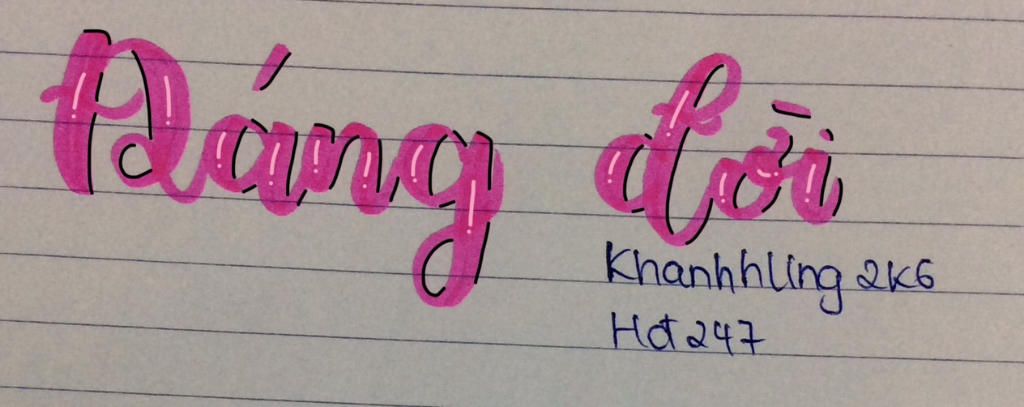 Đáng đời
Khanhhling 2k6
Hd 247